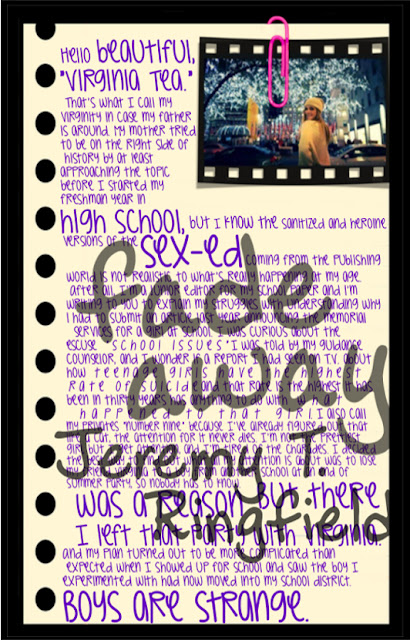 Hello beautiful,
"Virginia Tea."
That's what I call my
virginity in case my father
is around. My mother tried
to be on the right side of
history by at least
approaching the topic
before I started my
freshman year in
high school, but I know the sanitized and heroine
versions of the sex-ed coming from the publishing
world is not realistic to what's really happening at my age
after all. I'm a junior editor for my school paper and I'm
writing to you to explain my struggles with understanding why
I had to submit an article last year announcing the memorial
services for a girl at school. I was curious about the
escuse "school issues" I was told by my guidance
counselor, and I wonder if a report I had seen on T.V. about
how teenage girls have the highest
rate of suicide and that rate is the highest it has
been in thirty years has anything to do with what
happened to that girl. I also call
my privates "number nine" because I've already figured out that
cut, the attention for it never dies. I'm not the prettiest
girl but I get attention and I'm tired of the charades. I decided
the best way to find out what all my attention is about was to lose
my friend Virginia to a boy from another school at an end of
summer party, so nobody has to know.
was a reason but there
I left that party with Virginia.
and my plan turned out to be more complicated than
expected when I showed up for school and saw the boy I
experimented with had now moved into my school district.
Boys are strange.
Fade
away
Jeremy T.
Ringfield